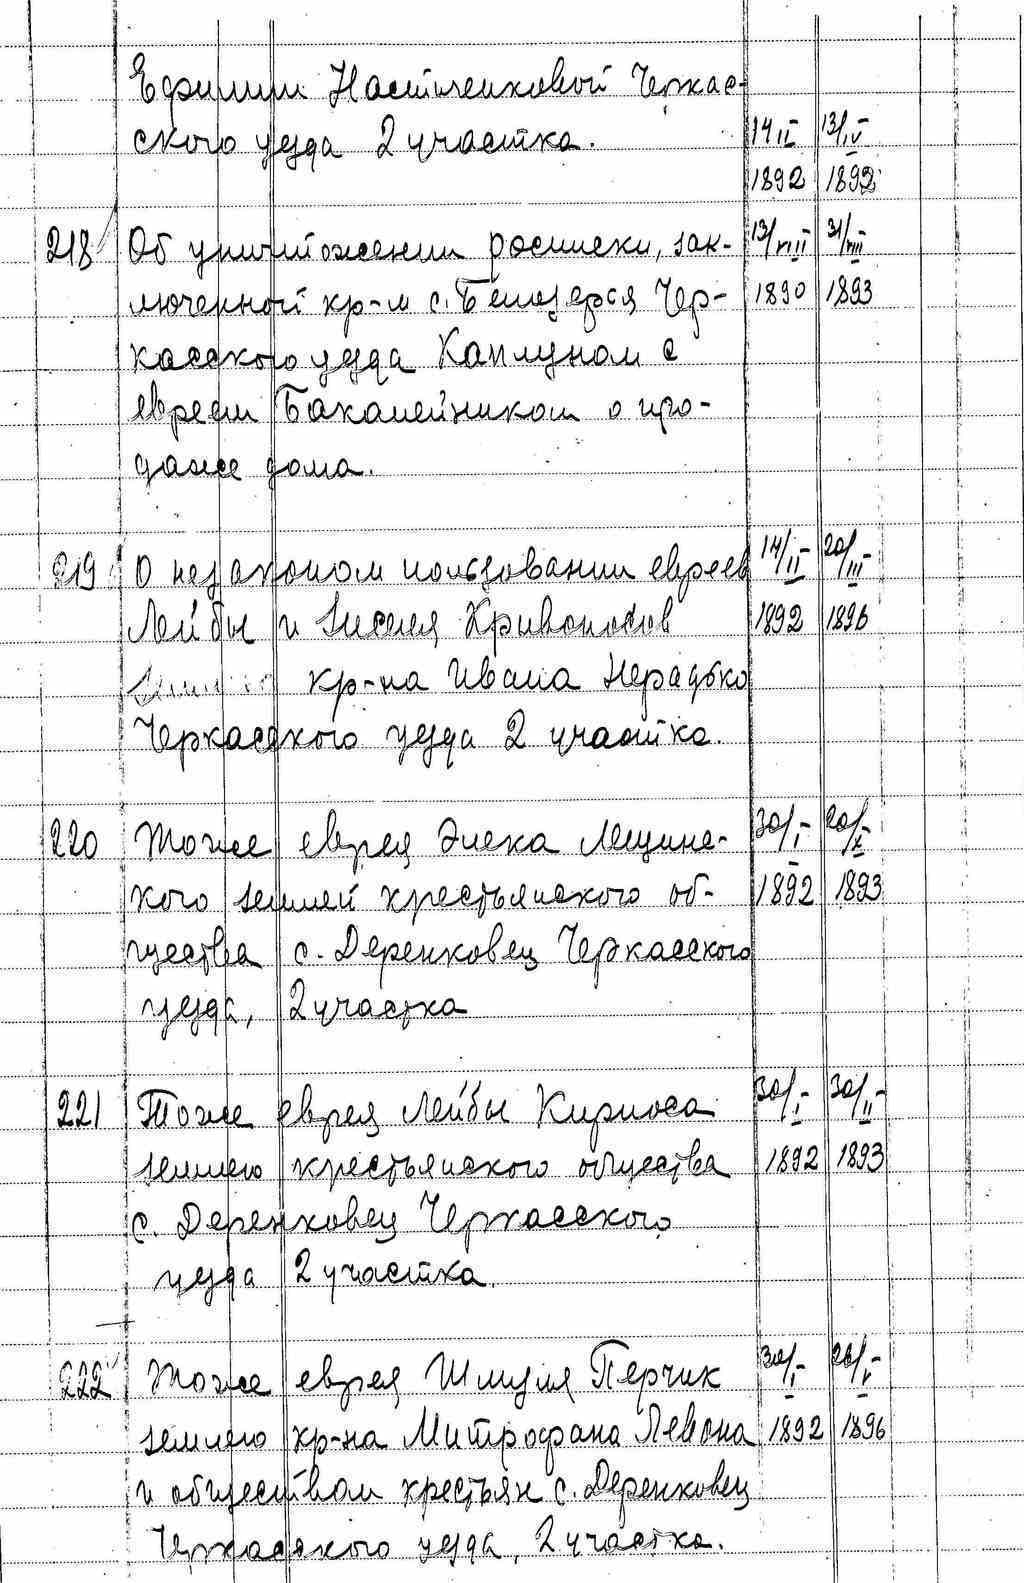 Ефимии Настменковой Черкас-
ского уезда 2 участка. 14/II 13/IV
1892 1892
218 Об уничтожении росписки, зак- 13/VIII 31/VIII
люченной кр-м с. Белозерья Чер- 1890 1893
касского уезда Каплуном с
евреем Бакалейником о про-
даже дома.
219 О незаконом пользовании евреев 14/II 20/III
Лейбы и Зиселя Кривоносов 1892 1896
кр-на Ивана Нерадько
Черкасского уезда 2 участка.
220 Тоже еврея Элека Лещинс- 30/I 20/X
кого землей крестьянского об- 1892 1893
щества с. Деренковец Черкасского
уезда, 2 участка
221 Тоже еврея Лейбы Кирноса 30/I 30/II
землею крестьянского общества 1892 1893
с. Деренковец Черкасского
уезда 2 участка.
222 Тоже еврея Шмуля Перчик 30/I 26/V
землею кр-на Митрофана Левона 1892 1896
и обществом крестьян с. Деренковец
Черкасского уезда, 2 участка.